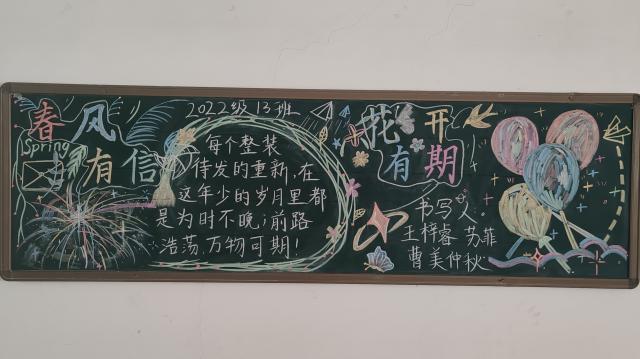 春风
Spring
有信
2022级13班
每个整装
待发的重新,在
这年少的岁月里都
是为时不晚;前路
浩荡,万物可期!
花开
有期
书写人。
王梓睿 苏菲
曹美仲秋